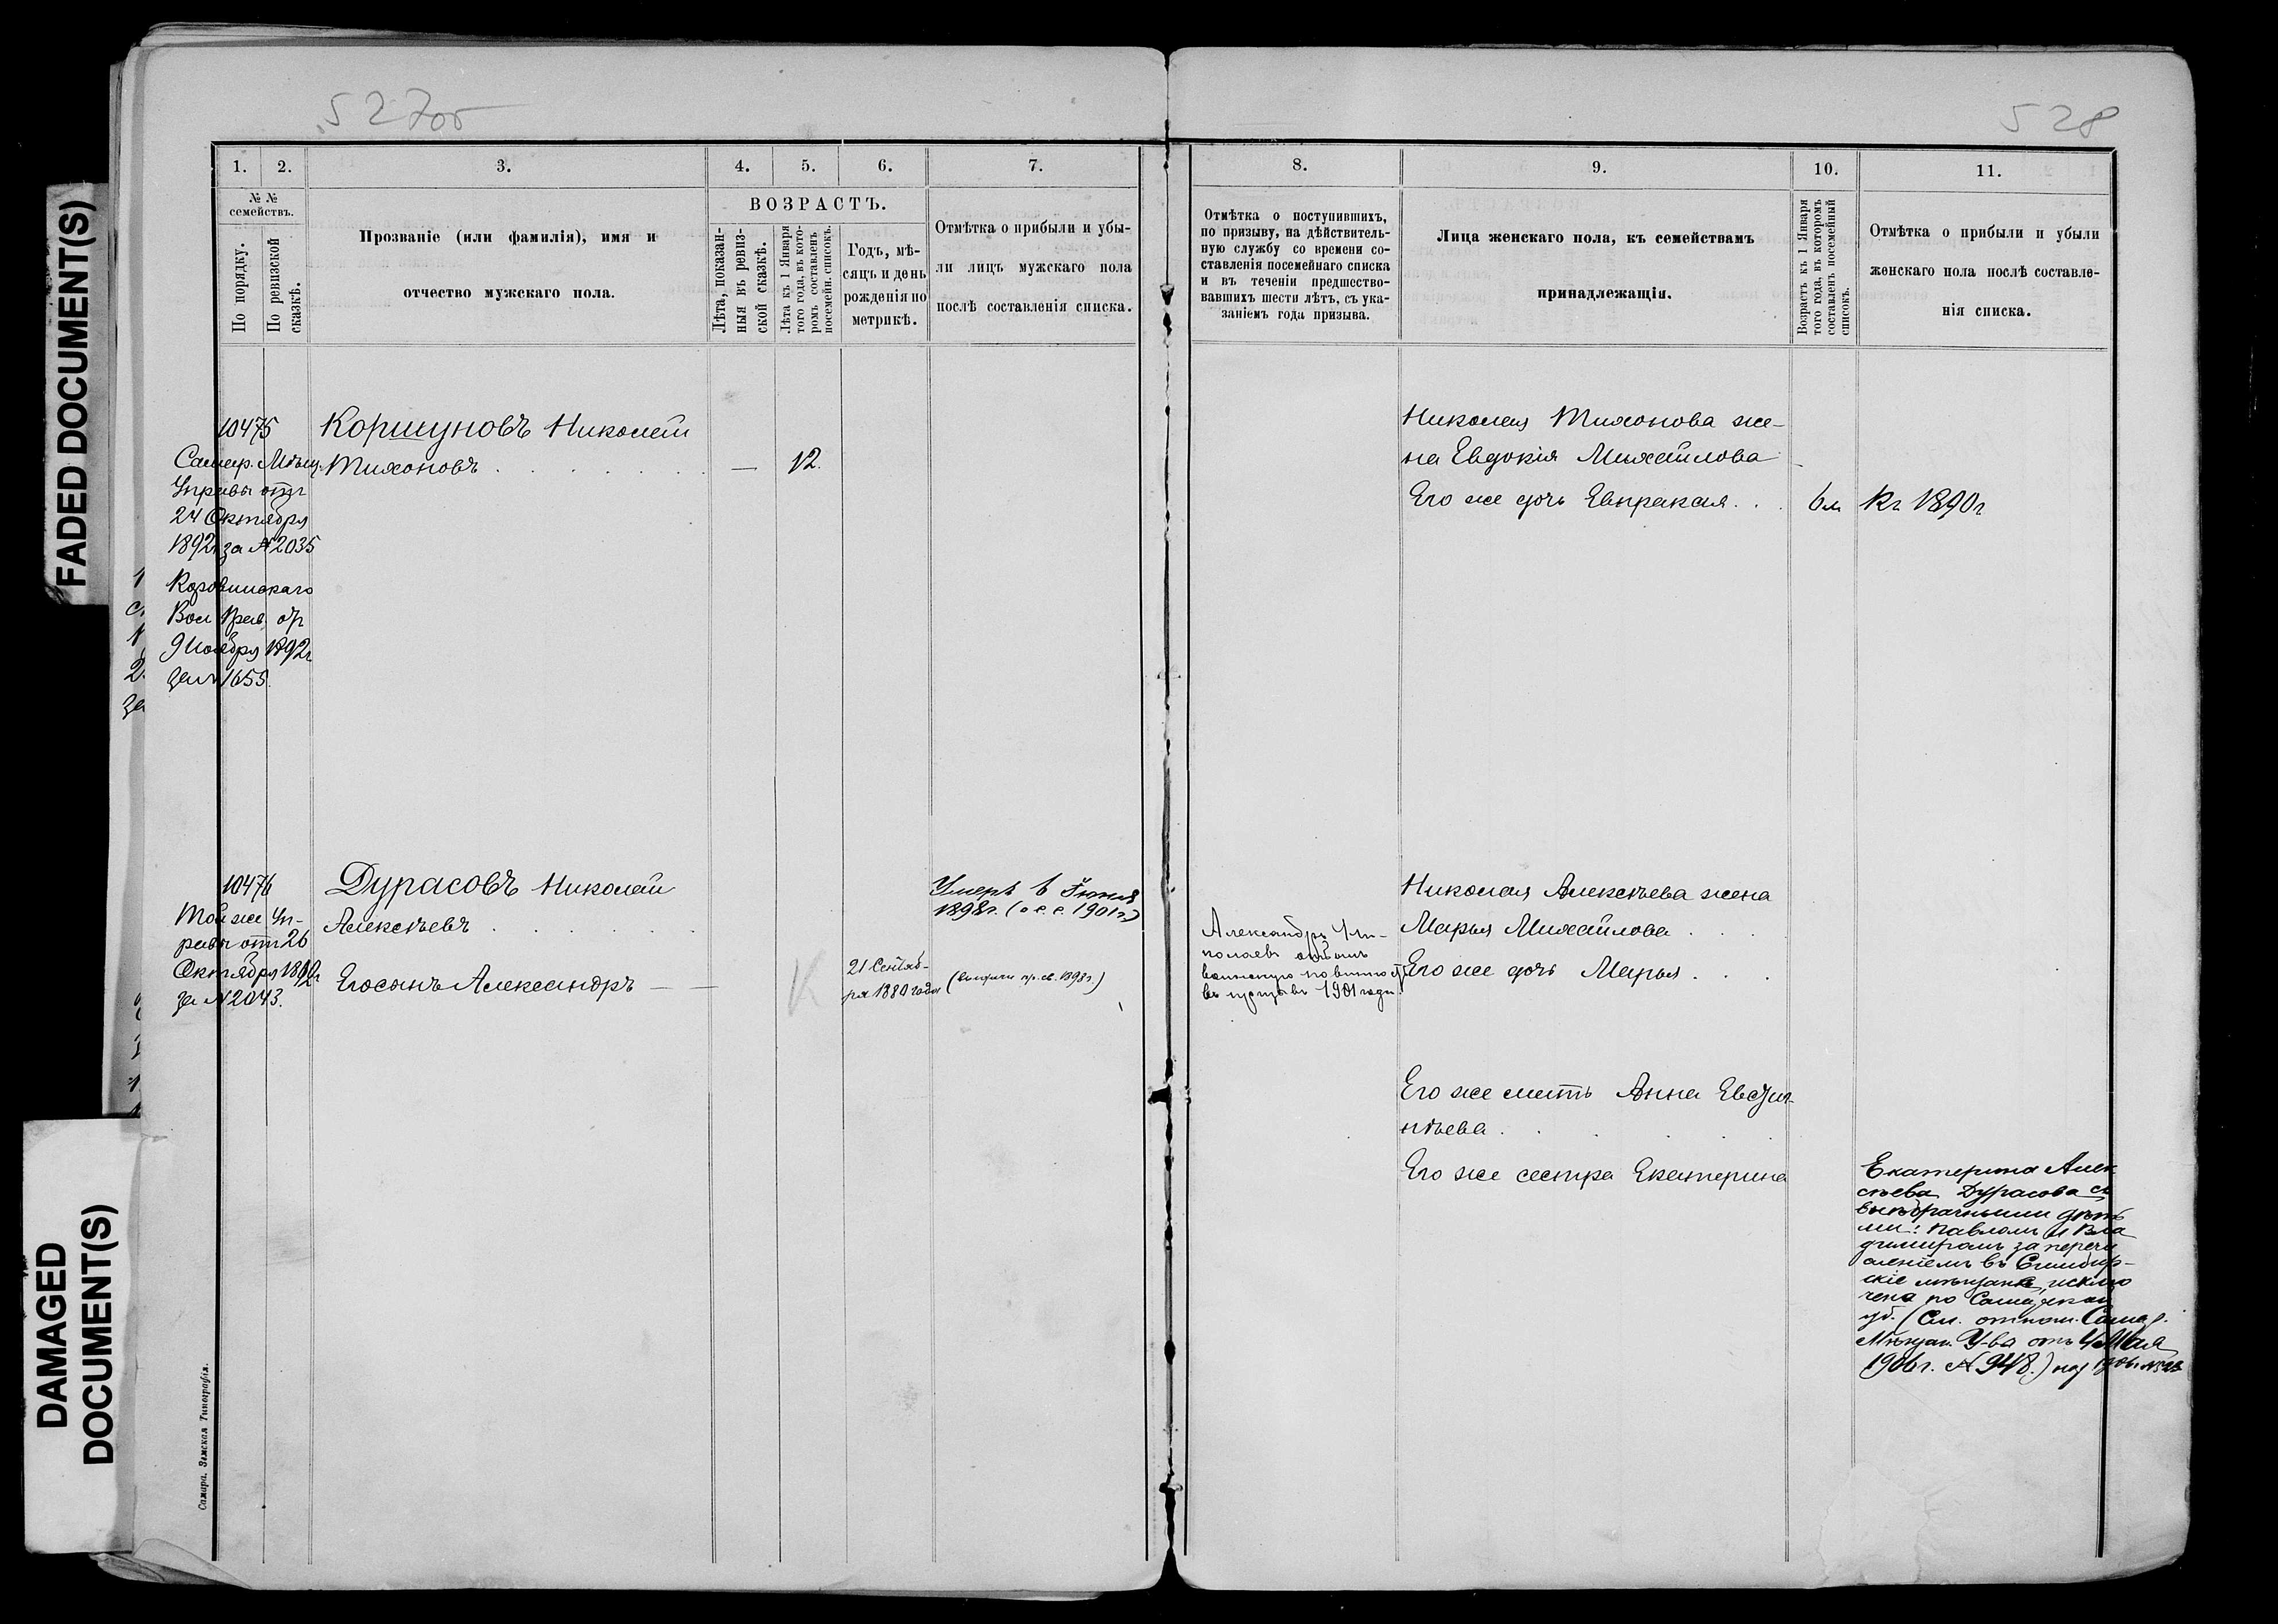 FADED DOCUMENT(S)
DAMAGED
DOCUMENT(S)
527об
1. 2. 3. 4. 5. 6. 7.
№ №
семействъ.
По порядку.
По ревизской
сказкѣ.
Прозваніе (или фамилія), имя и
отчество мужскаго пола.
ВОЗРАСТЪ.
Лѣта, показан-
ныя въ ревиз-
ской сказкѣ.
Лѣта къ 1 Января
того года, въ кото-
ромъ составленъ
посемейн. списокъ.
Годъ, мѣ-
сяцъ и день
рожденія по
метрикѣ.
Отмѣтка о прибыли и убы-
ли лицъ мужскаго пола
послѣ составленія списка.
10475
Самар. Мѣщ.
Управы отъ
24 Октября
1892г за №2035
Вол Прав. от
9 Ноября 1892г
за № 1655.
Коршуновъ Николай
Тихоновъ . . . . . — 12.
10476
Той же Уп-
равы отъ 26
Октября 1892г
за №2043.
Дурасовъ Николай
Алексѣевъ . . . . .
Его сынъ Александръ — —
21 Сентяб-
ря 1880 года
Умеръ 6 Іюня
1898г. (о с. с. 1901г.)
(выдачи пр. св. 1898г.)
Самара. Земская Типографія.
528
8. 9. 10. 11.
Отмѣтка о поступившихъ,
по призыву, на дѣйствитель-
ную службу со времени со-
ставленія посемейнаго списка
и въ теченіи предшество-
вавшихъ шести лѣтъ, съ ука-
заніемъ года призыва.
Лица женскаго пола, къ семействамъ
принадлежащія.
Возрастъ къ 1 Января
того года, въ которомъ
составленъ посемейный
списокъ.
Отмѣтка о прибыли и убыли
женскаго пола послѣ составле-
нія списка.
Николая Тихонова же-
на Евдокія Михайлова
Его же дочь Евпраксія . . 6м Къ 1890г
Александръ Ни-
колаевъ отбылъ
воинскую повинность
въ призывъ 1901 года.
Николая Алексѣева жена
Марья Михайлова . . .
Его же дочь Марья . . .
Его же мать Анна Евстиг-
нѣева . . . .
Его же сестра Екатерина
Екатерина Алек
сѣева Дурасова съ
внѣбрачными дѣть
ми: Павломъ и Вла
димиромъ за перечи
сленіемъ въ Симбир-
скіе мѣщане, исклю
чена по Самарской
губ. (См. отнош. Самар.
Мѣщан. У-вы отъ 4 Мая
1906г. №948.)